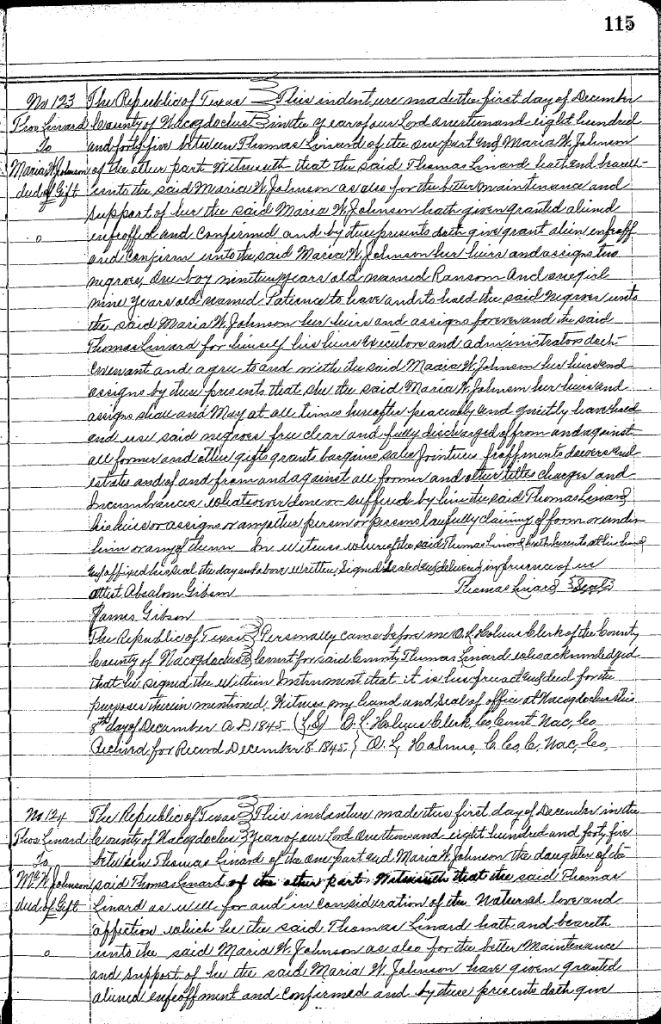 115
No 123 The Republic of Texas This indenture made the first day of December
Thos Linard County of Nacogdoches in the year of our Lord one thousand eight hundred
To and forty five between Thomas Linard of the one part and Maria W. Johnson
Maria W Johnson of the other part Witnesseth that the said Thomas Linard hath and
deed of Gift unto the said Maria W. Johnson as also for the better maintenance and
support of her the said Maria W. Johnson hath given granted aliened
enfeoffed and confirmed and by these presents doth give grant alien enfeoff
and confirm unto the said Maria W. Johnson her heirs and assigns two
negroes, One boy nineteen years old named Ransom And one girl
nine years old named Patience to have and to hold the said Negroes unto
the said Maria W. Johnson her heirs and assigns forever and the said
Thomas Linard for himself his heirs executors and administrators doth
covenant and agree to and with the said Maria W. Johnson her heirs and
assigns by these presents that she the said Maria W. Johnson her heirs and
assigns shall and May at all times hereafter peaceably and quietly have hold
and use said negroes free clear and fully discharged of from and against
all former and other gifts grants bargains sales Jointures dowers and
estates and of and from and against all former and other titles charges and
Incumbrances whatsoever done or suffered by him the said Thomas Linard
his heirs or assigns or any other person or persons lawfully claiming from or under
him or any of them In witness whereof the said Thomas Linard hath hereunto set his hand
and affixed his seal the day and above written, Signed sealed and delivered in presence of us
attest Absalom Gibson Thomas Linard Seal
James Gibson
The Republic of Texas Personally came before me O. L. Holmes Clerk of the County
County of Nacogdoches Court for said County Thomas Linard who acknowledged
that he signed the within Instrument that it is his free act and deed for the
purposes therein mentioned. Witness my hand and seal of office at Nacogdoches this
8th day of December A.D. 1845 (L.S) O. L. Holmes Clerk, Co, Court, Nac, Co
Received for Record December 8 1845 O. L. Holmes, C. Co, C, Nac, Co,
No 124 The Republic of Texas This indenture made this first day of December in the
Thos Linard County of Nacogdoches Year of our Lord One thousand eight hundred and forty five
To between Thomas Linard of the one part and Maria W. Johnson the daughter of the
M. W Johnson said Thomas Linard of the other part Witnesseth that the said Thomas
deed of Gift Linard as well for and in consideration of the Natural love and
affection which he the said Thomas Linard hath and beareth
unto the said Maria W. Johnson as also for the better Maintenance
and support of her the said Maria W. Johnson have given granted
aliened enfeoffment and confirmed and by these presents doth give